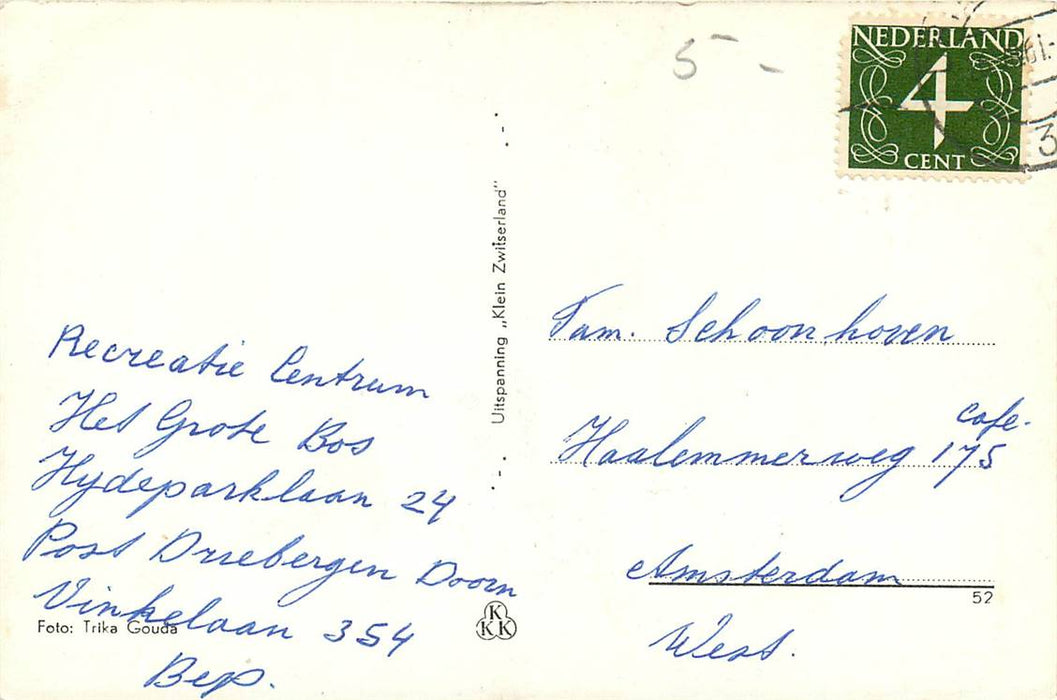 5-  -
NEDERLAND
4
CENT
3
Recreatie Centrum
Het Grote Bos
Hydeparklaan 24
Post Driebergen Doorn
Vinkelaan 354
Bep.
Foto: Trika Gouda
Uitspanning „Klein Zwitserland”
KKK
Fam. Schoonhoven
cafe.
Haalemmerweg 175
Amsterdam
52
West.